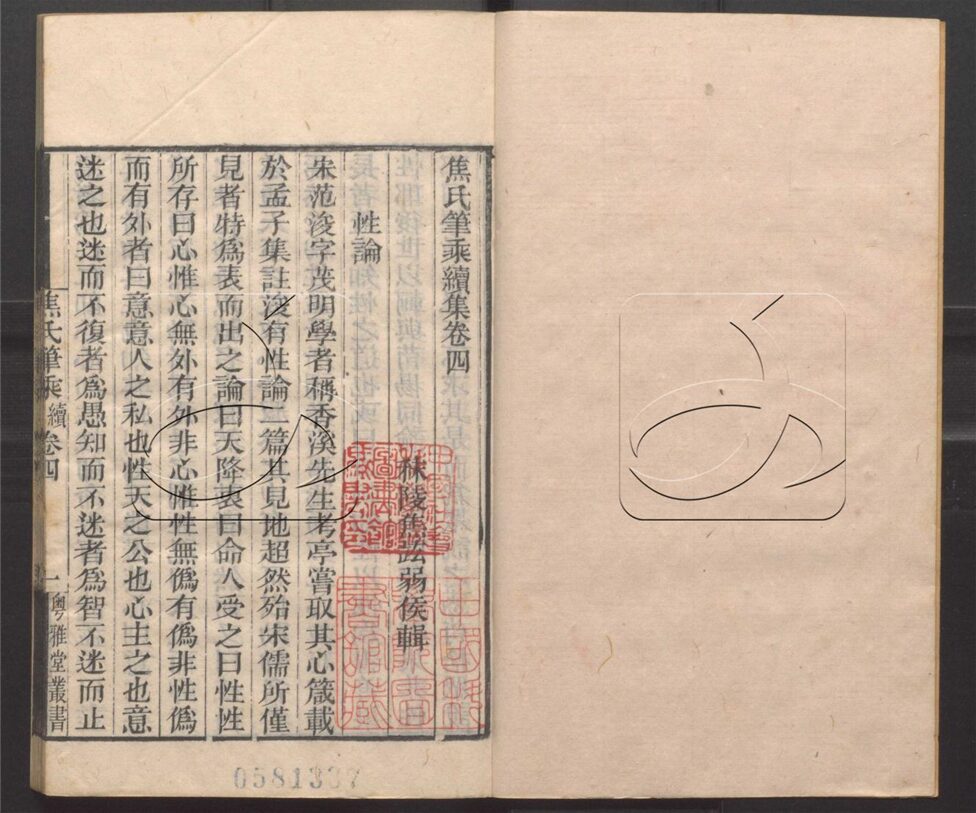 焦氏筆乘續集卷四
秣陵焦竑弱侯輯
性論
朱范浚字茂明學者稱香溪先生考亭嘗取其心箴載
於孟子集註浚有性論二篇其見地超然殆宋儒所僅
見者特爲表而出之論曰天降衷曰命人受之曰性性
所存曰心惟心無外有外非心惟性無僞有僞非性僞
而有外者曰意意人之私也性天之公也心主之也意
迷之也迷而不復者爲愚知而不迷者爲智不迷而止
焦氏筆乘 續卷四
一
粵雅堂叢書
0581337